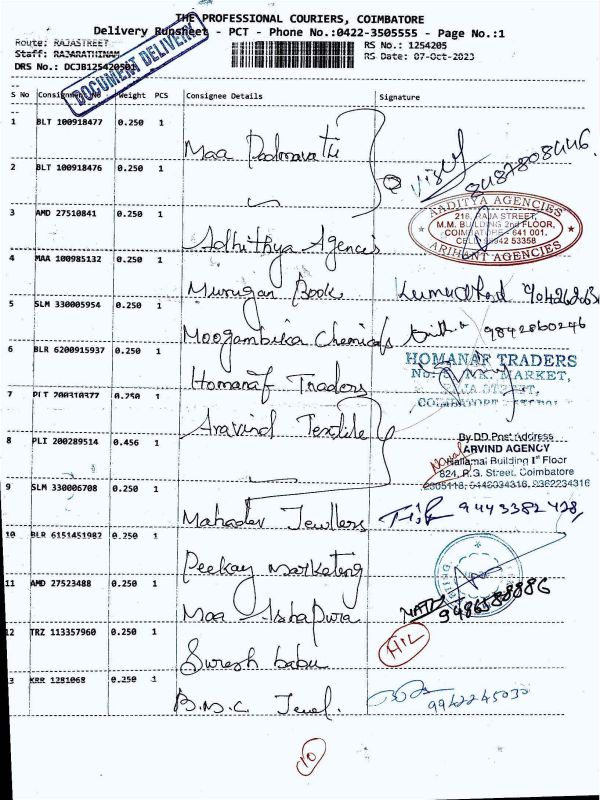 THE PROFESSIONAL COURIERS, COIMBATORE
Delivery Runsheet - PCT - Phone No.:0422-3505555 - Page No.:1
Route: RAJASTREET
RS No.: 1254205
Staff: RAJARATHINAM
RS Date: 07-Oct-2023
DRS No.: DCJB125420501
DOCUMENT DELIVERY
S No Consignment No Weight PCS Consignee Details Signature
1 BLT 100918477 0.250 1
Maa Padmavathi
2 BLT 100918476 0.250 1
8487808446
3 AMD 27510841 0.250 1
Adhithya Agencies
AADITYA AGENCIES
216, RAJA STREET,
M.M. BUILDING 2nd FLOOR,
COIMBATORE - 641 001.
CELL: 98942 53358
ARIHANT AGENCIES
4 MAA 100985132 0.250 1
Murugan Book
5 SLM 330005954 0.250 1
Moogambika Chemicals
9842860246
6 BLR 6200915937 0.250 1
Homanaf Traders
HOMANAF TRADERS
MARKET,
RAJA STREET,
7 PLT 200310377 0.250 1
Aravind Textile
8 PLI 200289514 0.456 1
By DD Post Address
ARVIND AGENCY
Nallamai Building Ist Floor
824, R.G. Street, Coimbatore
9 SLM 330006708 0.250 1
Mahadev Jewllers
9443382478,
10 BLR 6151451982 0.250 1
Peekay marketing
11 AMD 27523488 0.250 1
Maa Ishapura
12 TRZ 113357960 0.250 1
HIL
Suresh babu
13 KRR 1281068 0.250 1
B.M.C. Jewel.
9942245030
10